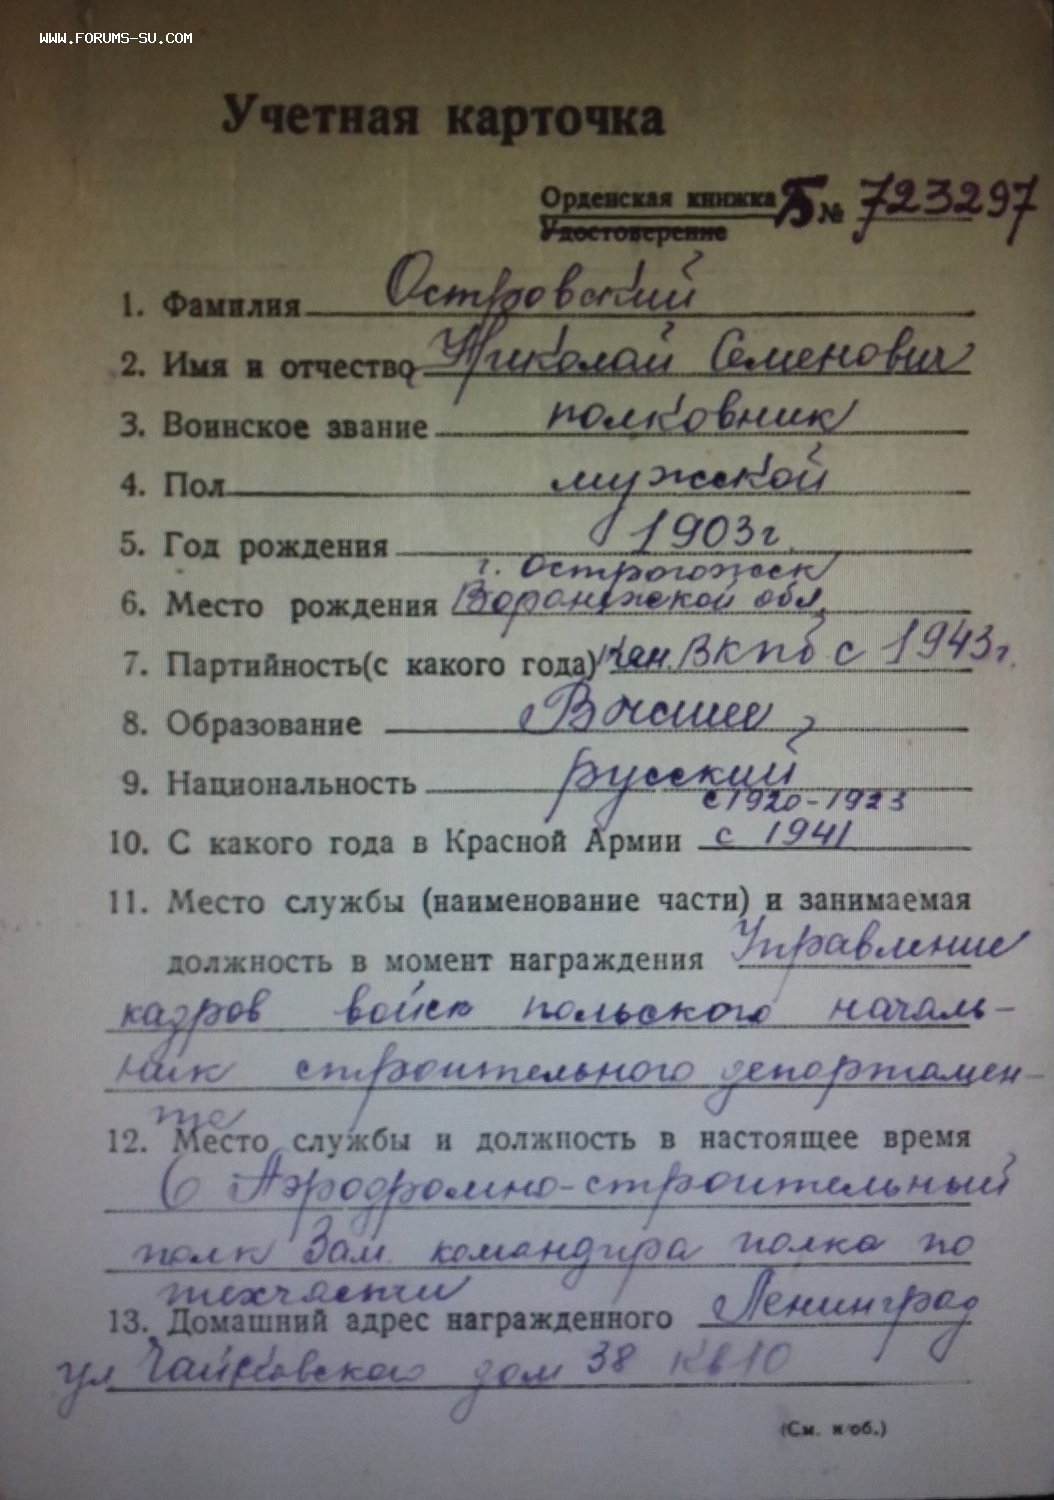 WWW.FORUMS-SU.COM
Учетная карточка
Орденская книжка Б № 723297
Удостоверение
1. Фамилия Островский
2. Имя и отчество Николай Семенович
3. Воинское звание полковник
4. Пол мужской
5. Год рождения 1903г.
г. Острогожск
6. Место рождения Воронежской обл.
7. Партийность(с какого года) Кан. ВКПб с 1943г.
8. Образование Высшее
9. Национальность русский
с 1920-1923
10. С какого года в Красной Армии с 1941
11. Место службы (наименование части) и занимаемая
должность в момент награждения Управление
кадров войск польского началь-
ник строительного депортамен-
те
12. Место службы и должность в настоящее время
6 Аэродромно-строительный
полк Зам. командира полка по
техчасти
13. Домашний адрес награжденного Ленинград
ул Чайковского дом 38 кв 10
(См. н об.)